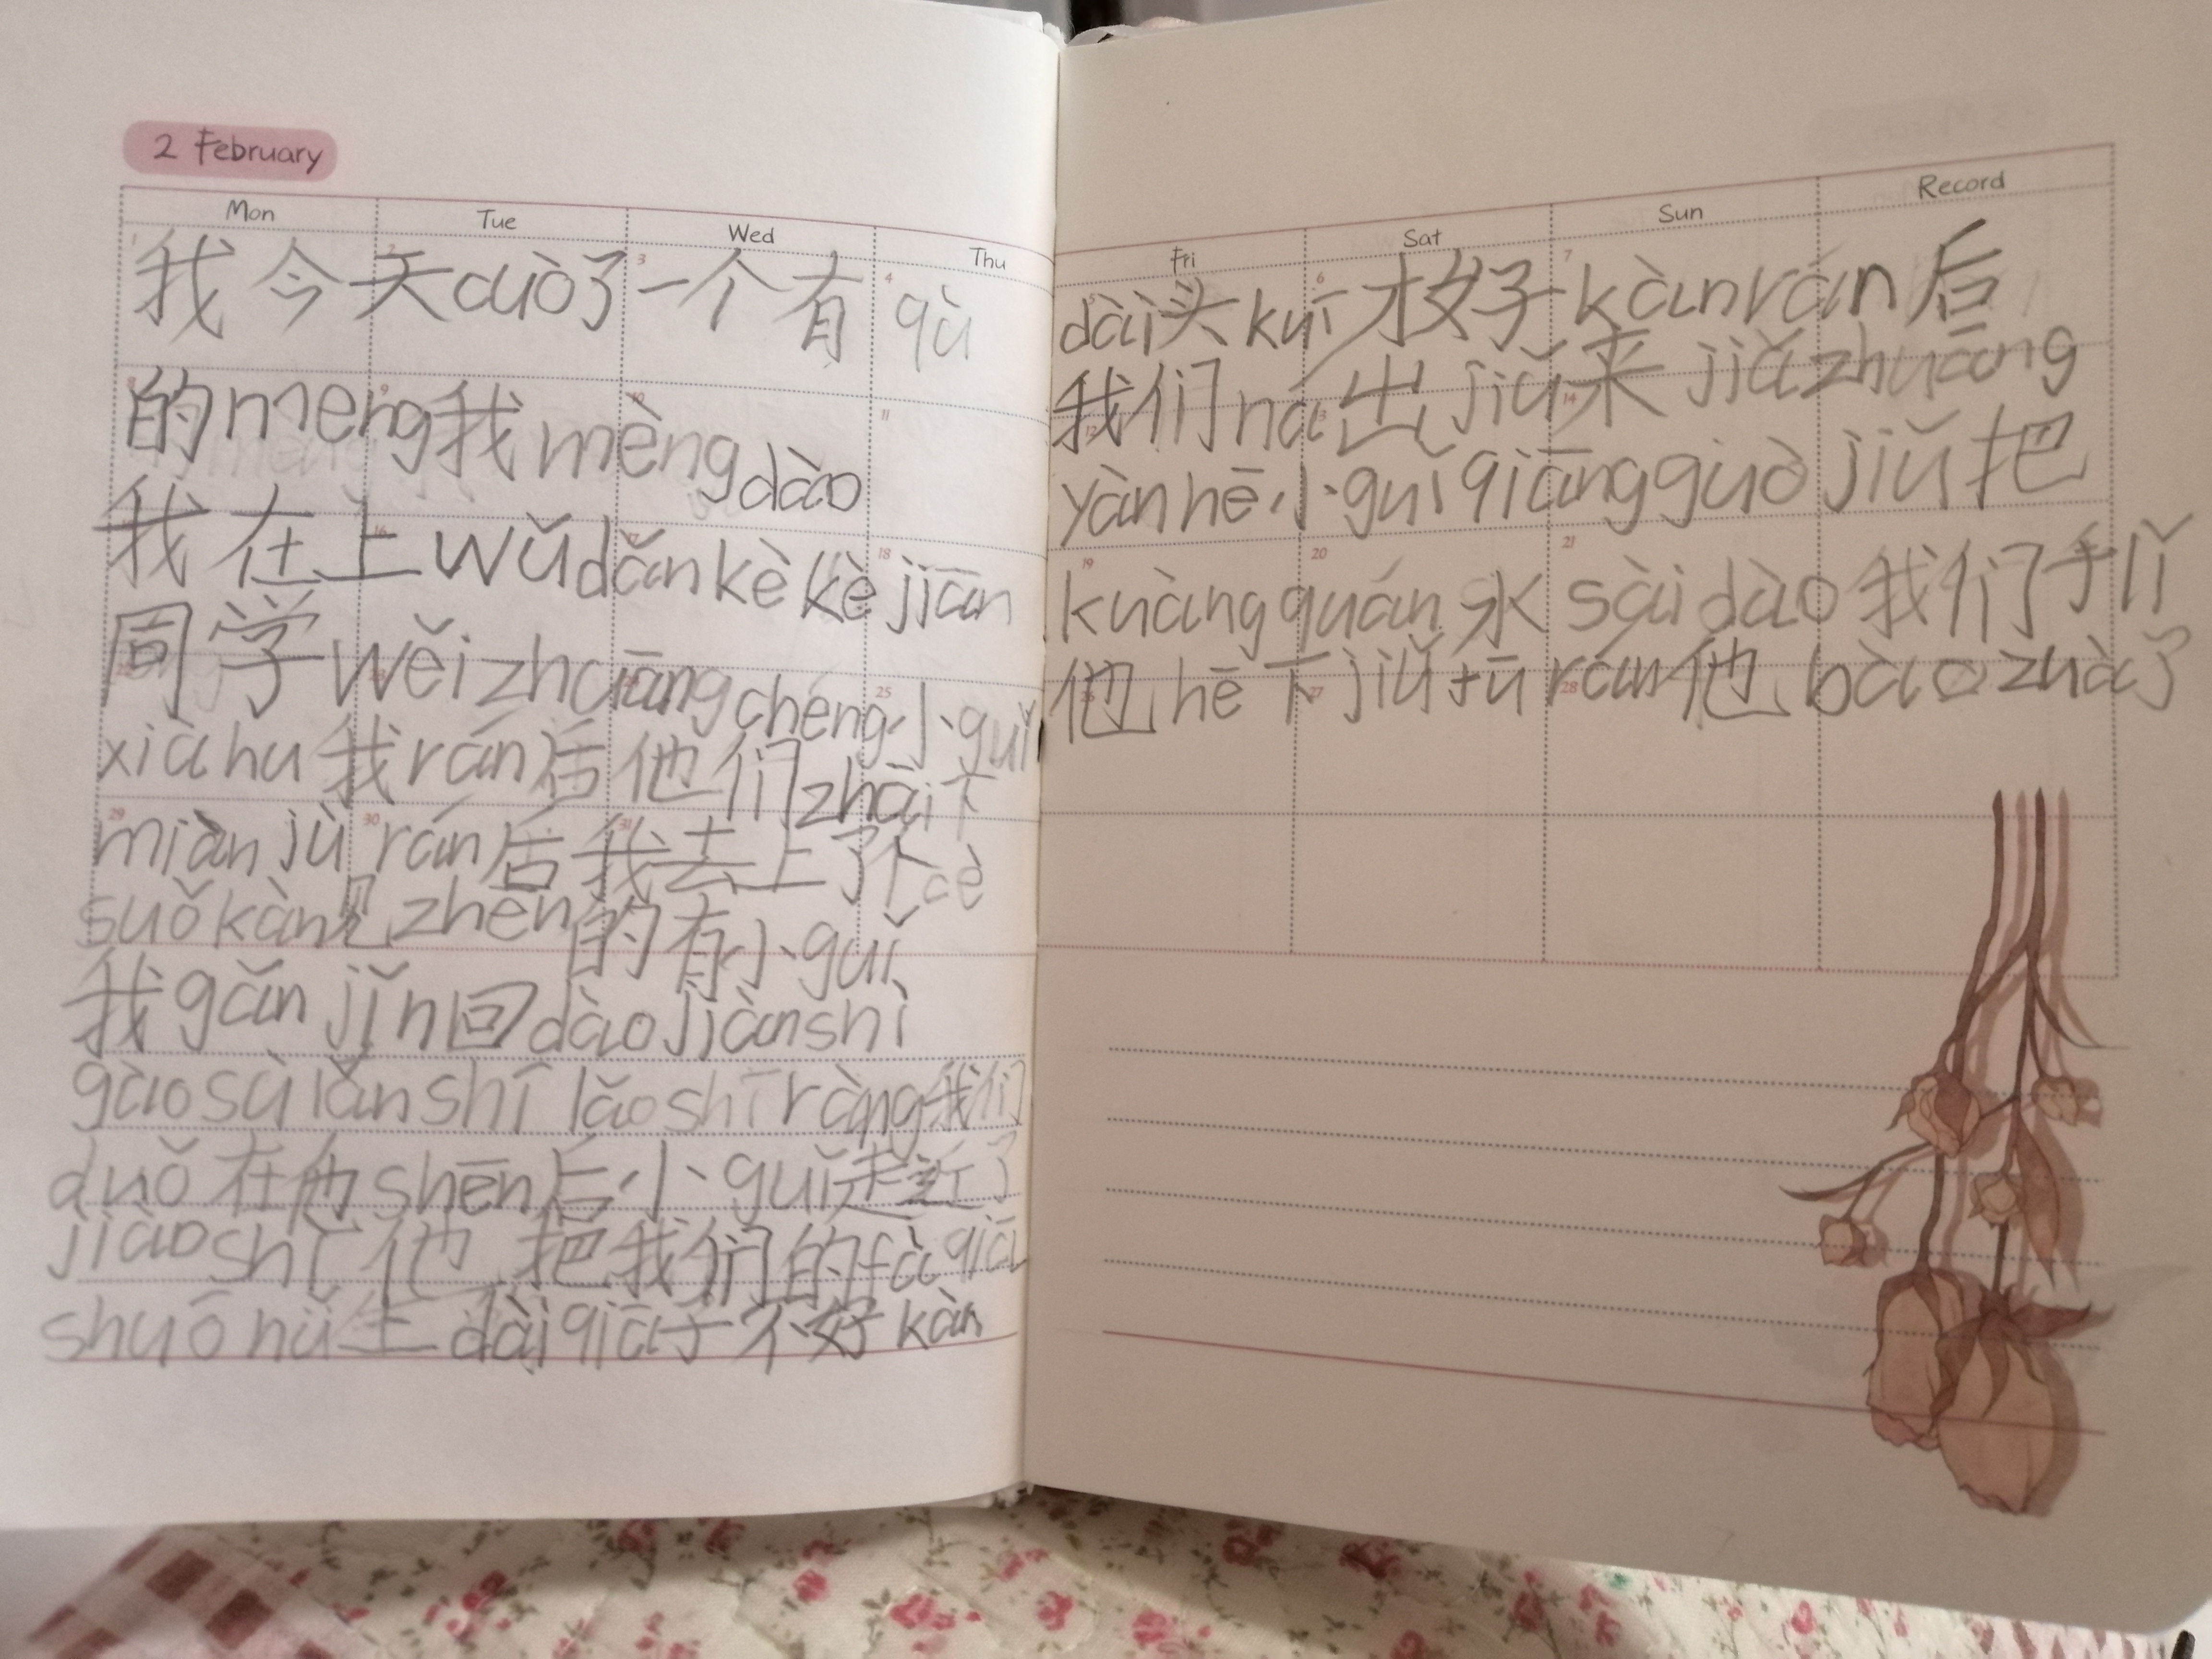 2 February
Mon Tue Wed Thu
我今天cuò了一个有qù
的meng我mèngdào
我在上wǔdǎnkèkèjiān
同学wěizhuāngchéng小guǐ
xiàhu我rán后他们zhāi下
miànjùrán后我去上了个cè
suǒkàn见zhēn的有小guǐ
我gǎnjǐn回dàojiànshì
gàosùlǎnshīlǎoshīràng我们
duǒ在他shēn后小guǐ走近了
jiàoshī他把我们的fàqiā
shuōnǚ生dàiqiā子不好kàn
Fri Sat Sun Record
dài头kuī才好子kànrán后
我们ná出jiǔ来jiǎzhuāng
yànhē小guǐqiāngguòjiǔ把
kuàngquán水sàidào我们手lǐ
他hē下jiǔtūrán他bàozhà了